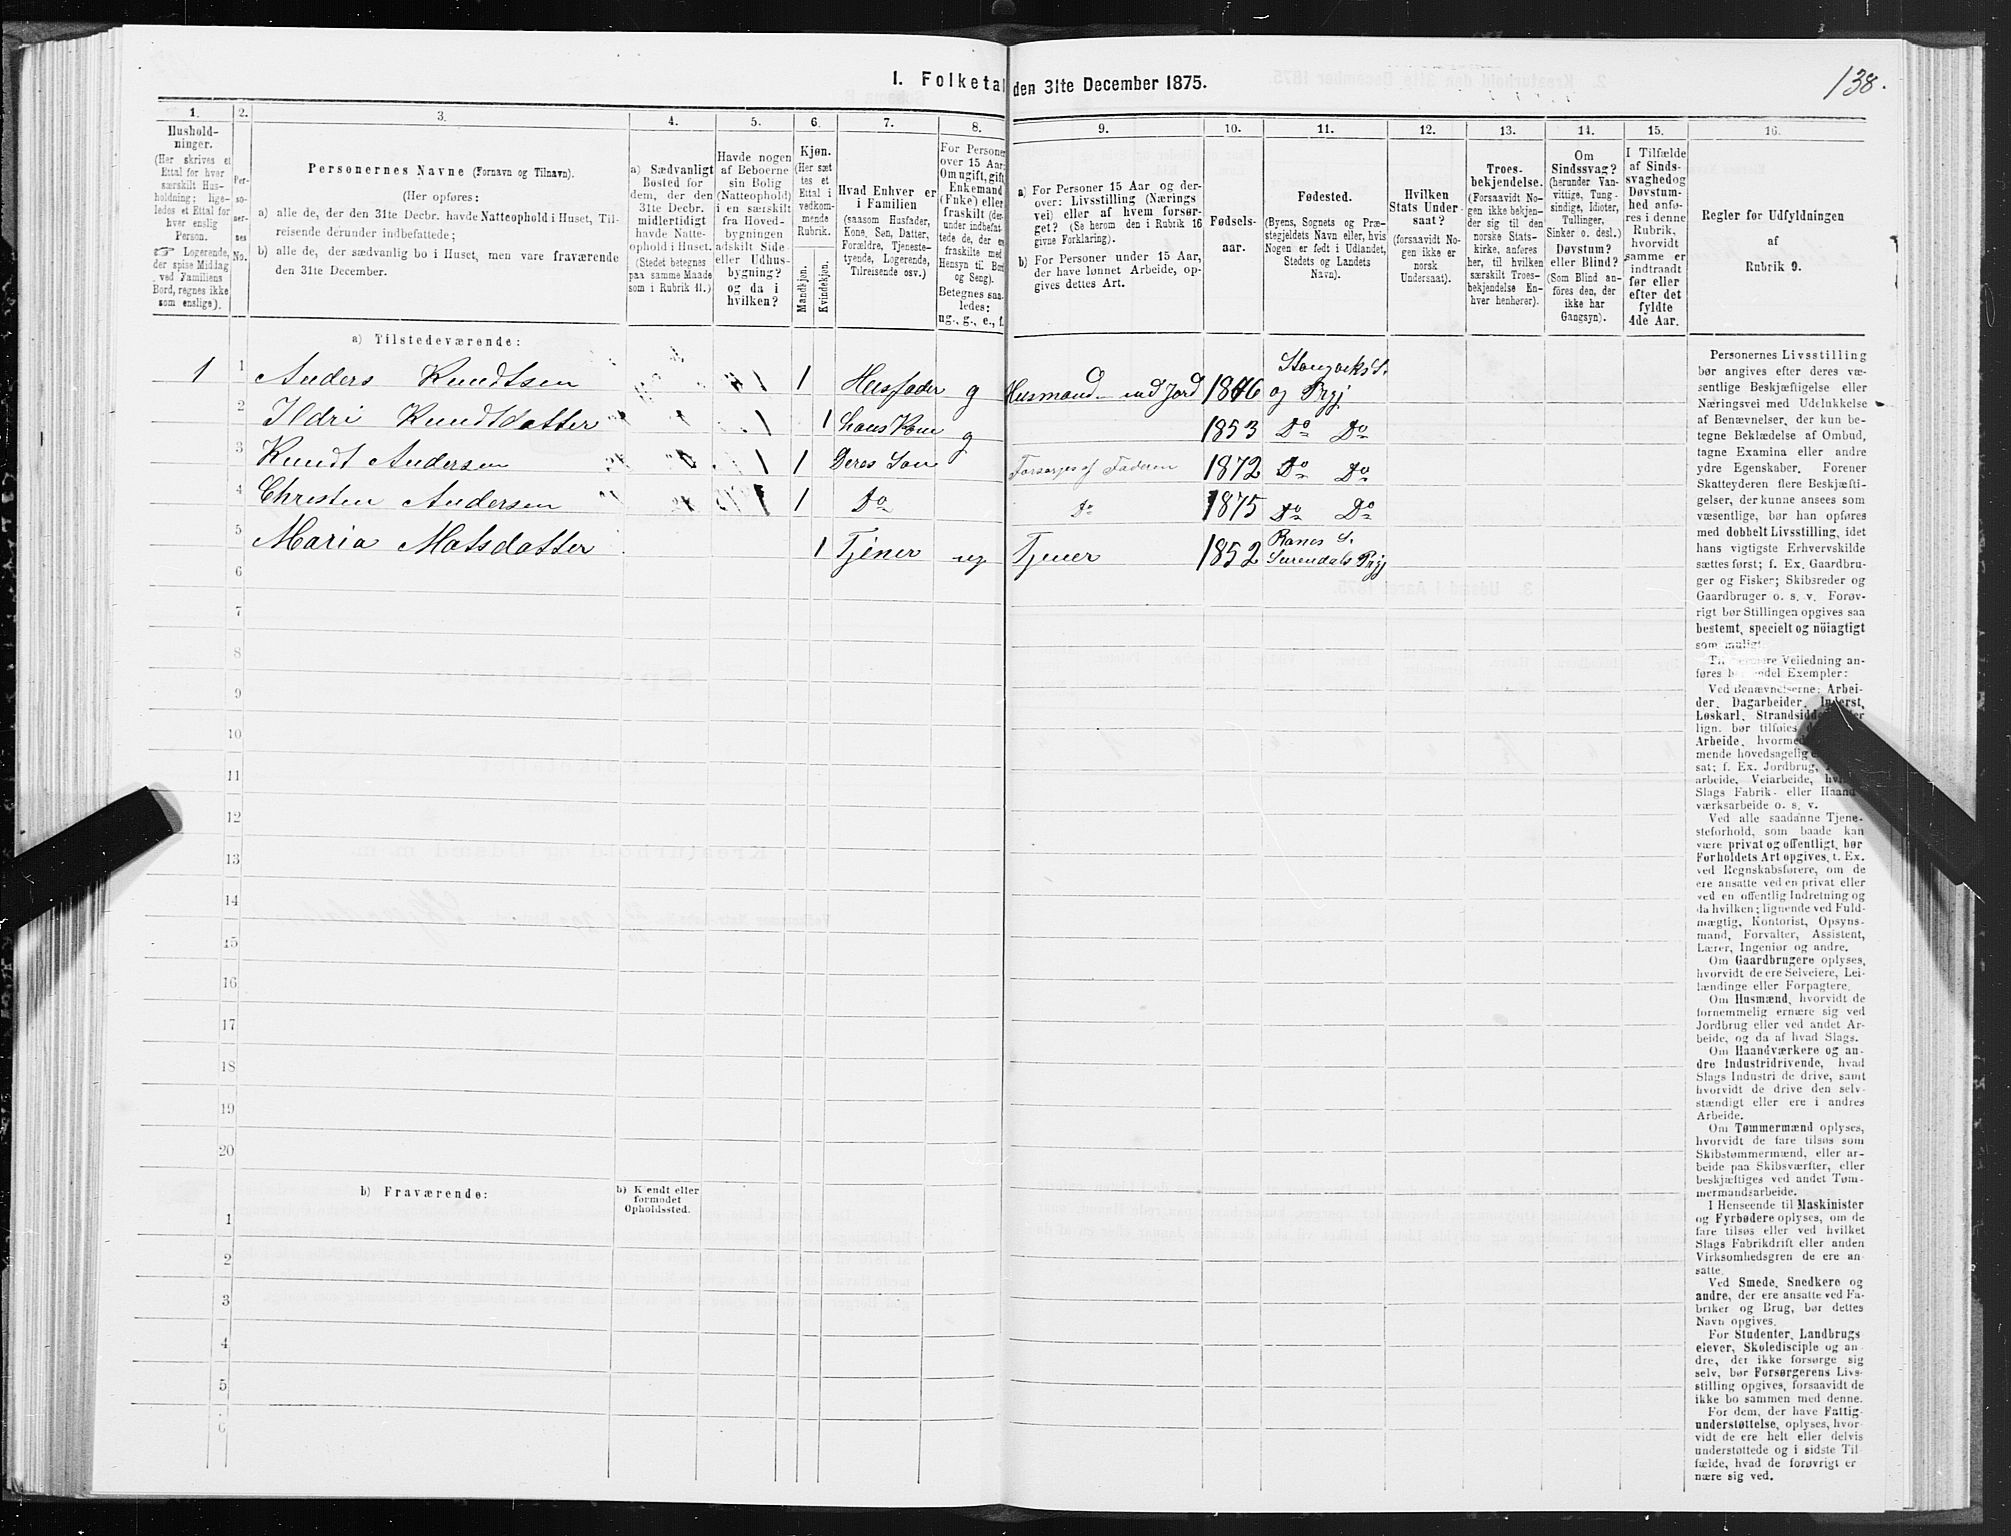 138.
I. Folketal den 31te December 1875.
1.
Hushold-
ninger.
(Her skrives et
Ettal for hver
særskilt Hus-
holdning; lige-
ledes et Ettal for
hver enslig
Person.
Logerende,
der spise Middag
ved Familiens
Bord, regnes ikke
som enslige).
2.
Per-
so-
ner-
nes
No.
3.
Personernes Navne (Fornavn og Tilnavn).
(Her opføres:
a) alle de, der den 31te Decbr. havde Natteophold i Huset, Til-
reisende derunder indbefattede;
b) alle de, der sædvanlig bo i Huset, men vare fraværende
den 31te December.
4.
a) Sædvanligt
Bosted for
dem, der den
31te Decbr.
midlertidigt
havde Natte-
ophold i Huset.
(Stedet betegnes
paa samme Maade
som i Rubrik 11.)
5.
Havde nogen
af Beboerne
sin Bolig
(Natteophold)
i en særskilt
fra Hoved-
bygningen
adskilt Side-
eller Udhus-
bygning?
og da i
hvilken?
6.
Kjøn.
(Her sæt
tes et
Ettal i
vedkom-
mende
Rubrik.
Mandkjøn.
Kvindekjøn.
7.
Hvad Enhver er
i Familien
(saasom Husfader,
Kone, Søn, Datter,
Forældre, Tjeneste-
tyende, Logerende,
Tilreisende osv.)
8.
For Personer
over 15 Aar:
Om ugift, gift,
Enkemand
(Enke) eller
fraskilt (der-
under indbefat-
tede de, der ere
fraskilte med
Hensyn til Bord
og Seng).
Betegnes saa-
ledes:
ug., g., e., f.
9.
a) For Personer 15 Aar og der-
over: Livsstilling (Nærings
vei) eller af hvem forsør-
get? (Se herom den i Rubrik 16
givne Forklaring).
b) For Personer under 15 Aar,
der have lønnet Arbeide, op-
gives dettes Art.
10.
Fødsels-
aar.
11.
Fødested.
(Byens, Sognets og Præ-
stegjeldets Navn eller, hvis
Nogen er født i Udlandet,
Stedets og Landets
Navn).
12.
Hvilken
Stats Under
saat?
(forsaavidt No-
gen ikke er
norsk
Undersaat).
13.
Troes-
bekjendelse.
(Forsaavidt No-
gen ikke bekjen-
der sig til den
norske Stats-
kirke, anføres
her, til hvilken
særskilt Troes-
bekjendelse En-
hver henhører).
14.
Om
Sindssvag?
(herunder Van-
vittige, Tung-
sindige, Idioter,
Tullinger,
Sinker o. desl.)
Døvstum?
eller Blind?
(Som Blind an-
føres den, der
ikke har
Gangsyn).
15.
I Tilfælde
af Sinds-
svaghed og
Døvstum-
hed anfø-
res i denne
Rubrik,
hvorvidt
samme er
indtraadt
før eller
efter det
fyldte
4de Aar.
16.
Regler for Udfyldningen
af
Rubrik 9.
a) Tilstedeværende:
1 1 Anders Knudtsen 1 1 Husfader g Husmand med Jord 1846 Stangviks S. og Prgj
2 Ildri Knudtdatter 1 1 hans Kone g 1853 Do Do
3 Knudt Andersen 1 1 Deres Søn Forsørges af Faderen 1872 Do Do
4 Christen Andersen 1 1 Do Do 1875 Do Do
5 Maria Matsdatter 1 Tjener ug Tjener 1852 Ranes S. Surendals Prgj
6
7
8
9
10
11
12
13
14
15
16
17
18
19
20
b) Fraværende:
b) Kjendt eller
formodet
Opholdssted.
1
2
3
4
5
6
Personernes Livsstilling
bør angives efter deres væ-
sentlige Beskjæftigelse eller
Næringsvei med Udelukkelse
af Benævnelser, der kun be-
tegne Beklædelse af Ombud,
tagne Examina eller andre
ydre Egenskaber. Forener
Skatteyderen flere Beskjæfti-
gelser, der kunne ansees som
væsentlige, bør han opføres
med dobbelt Livsstilling, idet
hans vigtigste Erhvervskilde
sættes først; f. Ex. Gaardbru-
ger og Fisker; Skibsreder og
Gaardbruger o. s. v. Forøv-
rigt bør Stillingen opgives saa
bestemt, specielt og nöiagtigt
som muligt.
Til nærmere Veiledning an-
føres en del Exempler:
Ved Benævnelserne: Arbei-
der, Dagarbeider, Inderst,
Løskarl, Strandsidder eller
lign. bør tilføies
Arbeide, hvormed
mende hovedsagelig
sat; f. Ex. Jordbrug,
arbeide, Veiarbeide, hvilket
Slags Fabrik- eller Haand-
værksarbeide o. s. v.
Ved alle saadanne Tjene-
steforhold, som baade kan
være privat og offentligt, bør
Forholdets Art opgives, t. Ex.
ved Regnskabsførere, om de
ere ansatte ved en privat eller
ved en offentlig Indretning og
da hvilken; lignende ved Fuld-
mægtig, Kontorist, Opsyns-
mand, Forvalter, Assistent,
Lærer, Ingeniør og andre.
Om Gaardbrugere oplyses,
hvorvidt de ere Selveiere, Lei-
lændinge eller Forpagtere.
Om Husmænd, hvorvidt de
fornemmelig ernære sig ved
Jordbrug eller ved andet Ar-
beide, og da af hvad Slags.
Om Haandværkere og an-
dre Industridrivende, hvad
Slags Industri de drive, samt
hvorvidt de drive den selv-
stændigt eller ere i andres
Arbeide.
Om Tømmermænd oplyses,
hvorvidt de fare tilsøs som
Skibstømmermænd, eller ar-
beide paa Skibsværfter, eller
beskjæftiges ved andet Tøm-
mermandsarbeide.
I Henseende til Maskinister
og Fyrbødere oplyses, om de
fare tilsøs eller ved hvilket
Slags Fabrikdrift eller anden
Virksomhedsgren de ere an-
satte.
Ved Smede, Snedkere og
andre, der ere ansatte ved Fa-
briker og Brug, bør dettes
Navn opgives.
For Studenter, Landbrugs
elever, Skoledisciple og an-
dre, der ikke forsørge sig
selv, bør Forsørgerens Livs-
stilling opgives, forsaavidt de
ikke bo sammen med denne.
For dem, der have Fattig-
understøttelse, oplyses, hvor-
vidt de ere helt eller delvis
understøttede og i sidste Til-
fælde, hvad de forøvrigt er
nære sig ved.